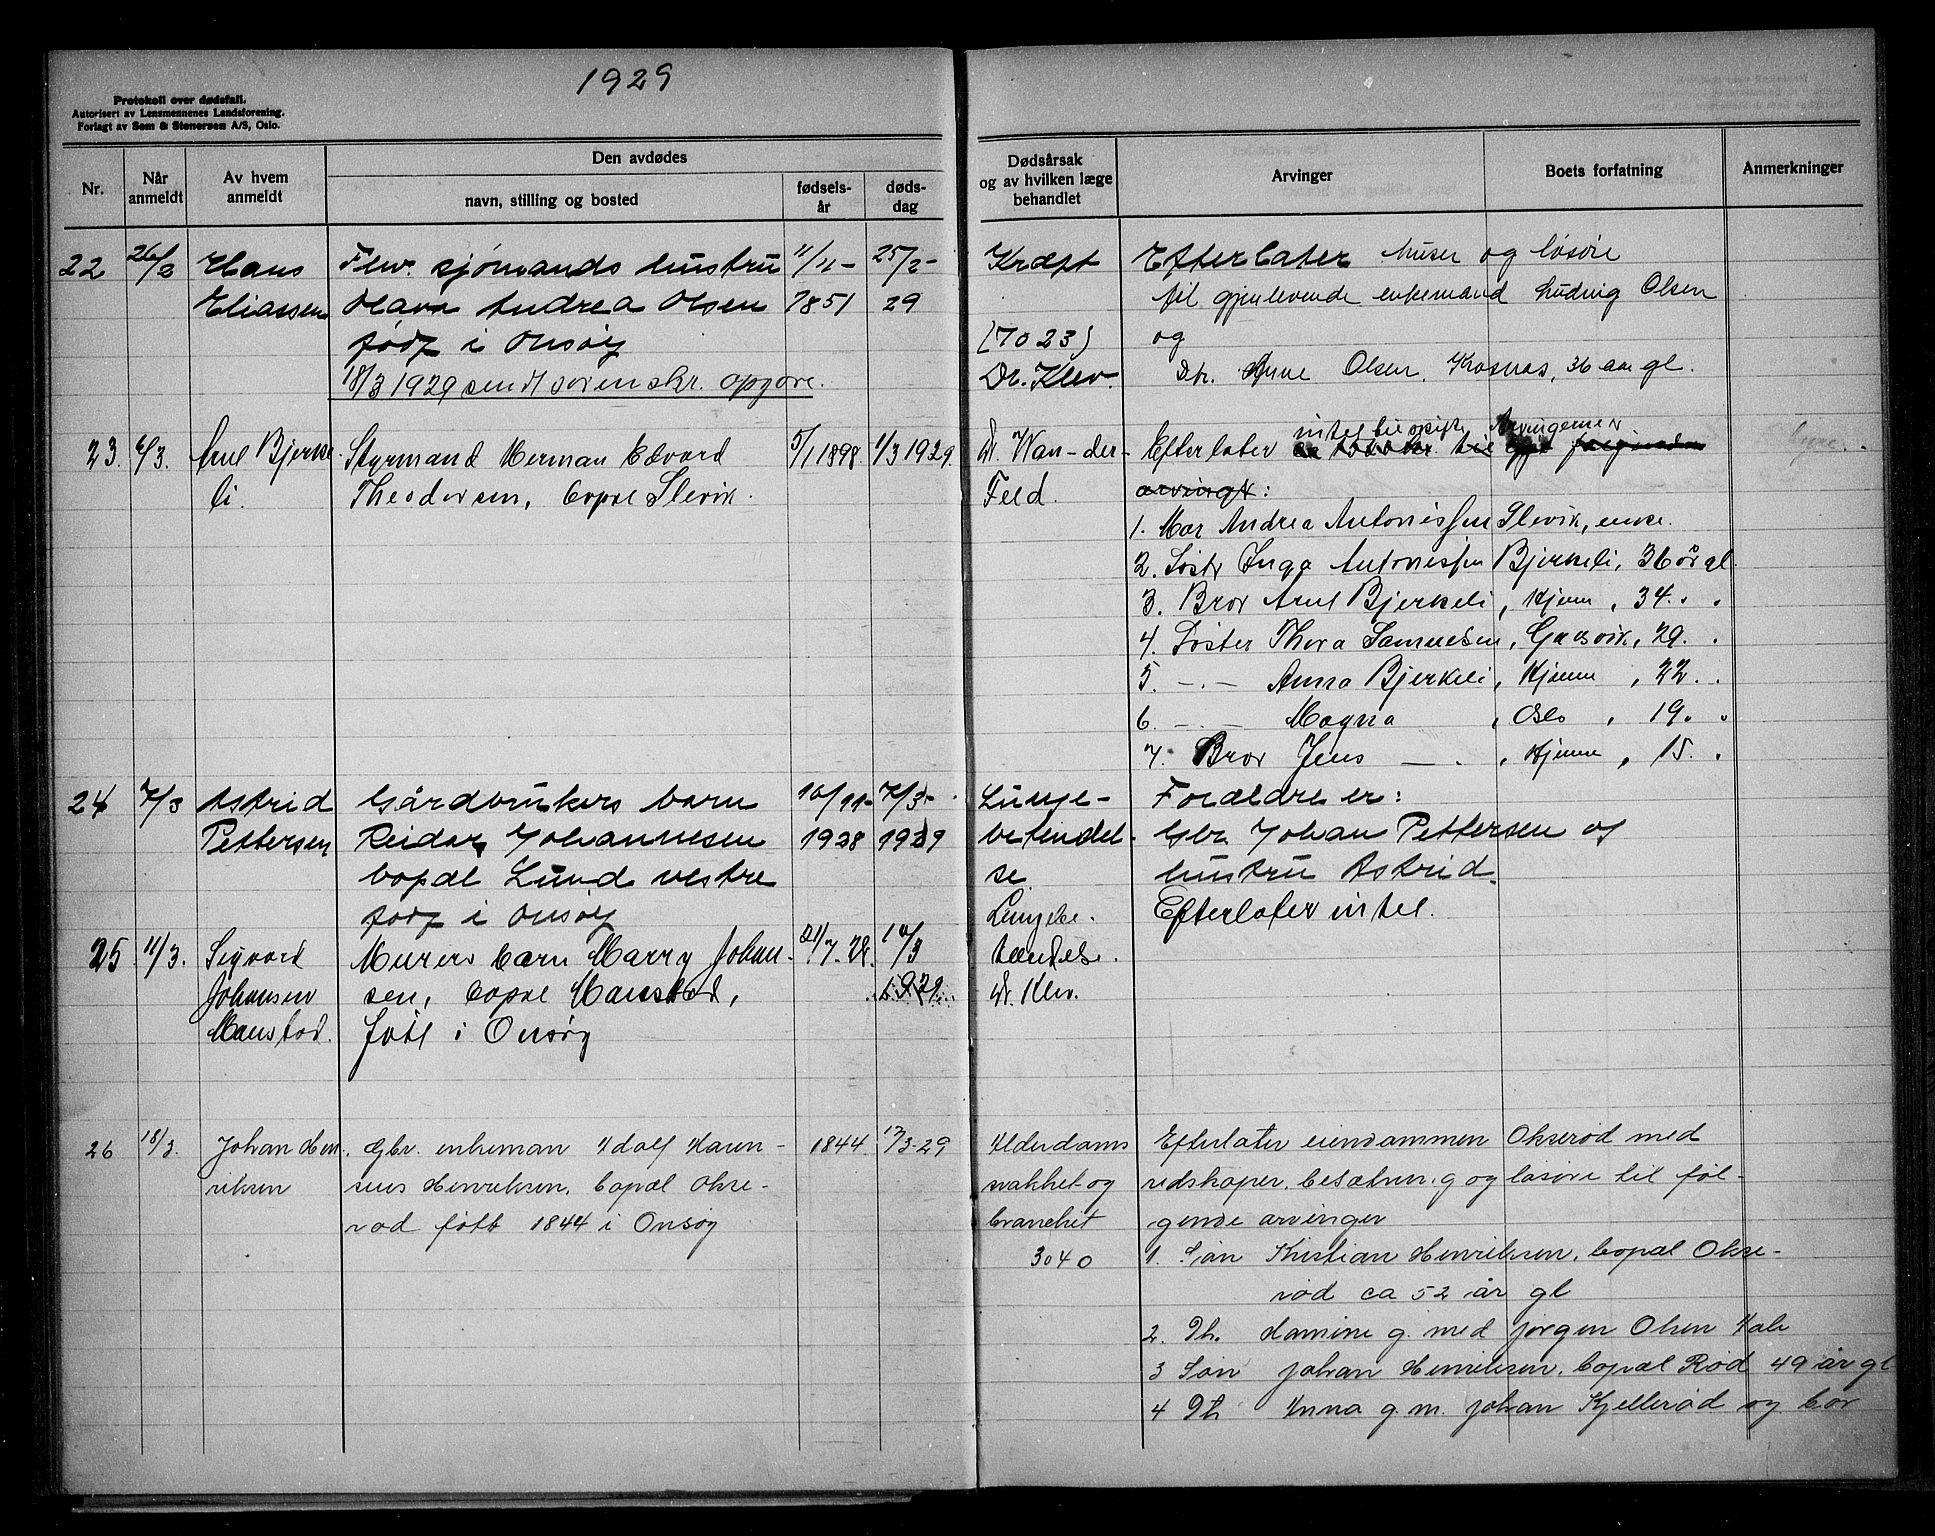 1929
Protokoll over dødsfall.
Autorisert av Lensmennenes Landsforening.
Forlagt av Sem & Stenersen A/S, Oslo.
Nr.
Når anmeldt
Av hvem anmeldt
Den avdødes
navn, stilling og bosted
fødsels-år
døds-dag
Dødsårsak og av hvilken læge behandlet
Arvinger
Boets forfatning
Anmerkninger
22 26/2 Hans Fhv. sjömands hustru 11/11- 25/2- Kræft Efterlater huser og løsøre
Eliassen Olava Andrea Olsen 1851 29 til gjenlevende enkemand Ludvig Olsen
født i Onsøy (7023) og
18/3 1929 sendt sorenskr. opgave. Dr. Klev. Dtr. Anne Olsen, Kosnes, 36 aar gl.
23. 6/3. Arnt Bjerke- Styrmand Herman Edvard 5/1 1898. 1/3 1929. Dr. Wan-der- Efterlater intet til opgift Arvingene er
li. Theodorsen, bopæl Slevik. Feld. arvingr:
1. Mor Andrea Antonissen Slevik, enke.
2. Søstr Inga Antonissen Bjerkeli, 36 år gl.
3. Bror Arnt Bjerkeli, Hjem, 34. "
4. Søster Thora Samuelsen, Gresvik, 29. "
5. -"- Anna Bjerkeli, Hjemme, 22. "
6 -"- Magna , Oslo , 19. "
7. Bror Jens — " , Hjemme, 15. "
24 7/3 Astrid Gårdbrukers barn 16/11- 7/3- Lunge- Forældre er:
Pettersen Reidar Johannesen 1928 1929 betendel- Gbr. Johan Pettersen og
bopæl Lund vestre se hustru Astrid.
født i Onsøy Efterlater intet.
25 11/3. Sigvard Murers barn Harry Johan- 21/7.28. 10/3 Lungebe-
Johansen sen, bopæl Manstad, 1929. tændelse.
Manstad. Født i Onsøy Dr. Klev.
26 18/3. Johan Hen- Gbr. enkeman Adolf Haren- 1844 17/3-29 Alderdoms Efterlater eiendommen Okserød med
riksen sius Henriksen, bopæl Okse- svakhet og redskaper, besætning og løsøre til føl-
rød født 1844 i Onsøy bronchit gende arvinger
3040 1. Søn Kristian Henriksen, bopæl Okse-
rød ca 52 år gl
2. Dt. Hamine g. med Jørgen Olsen Hale
3 Søn Johan Henriksen, bopæl Rød 49 år gl
4 Dt Anna g. m. Johan Kjellerød og bor